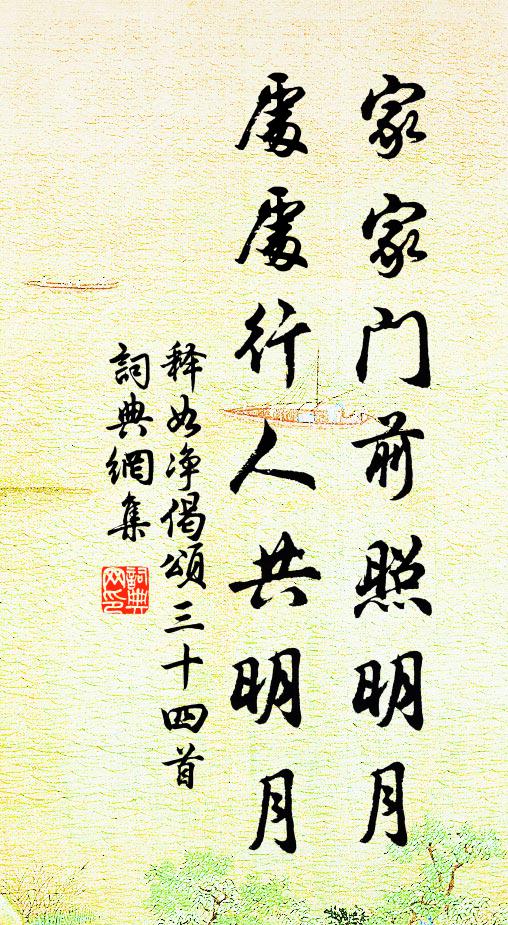 家家门前照明月
處處行人共明月
释如净偈頌三十四首
詞典網集
詞典網印